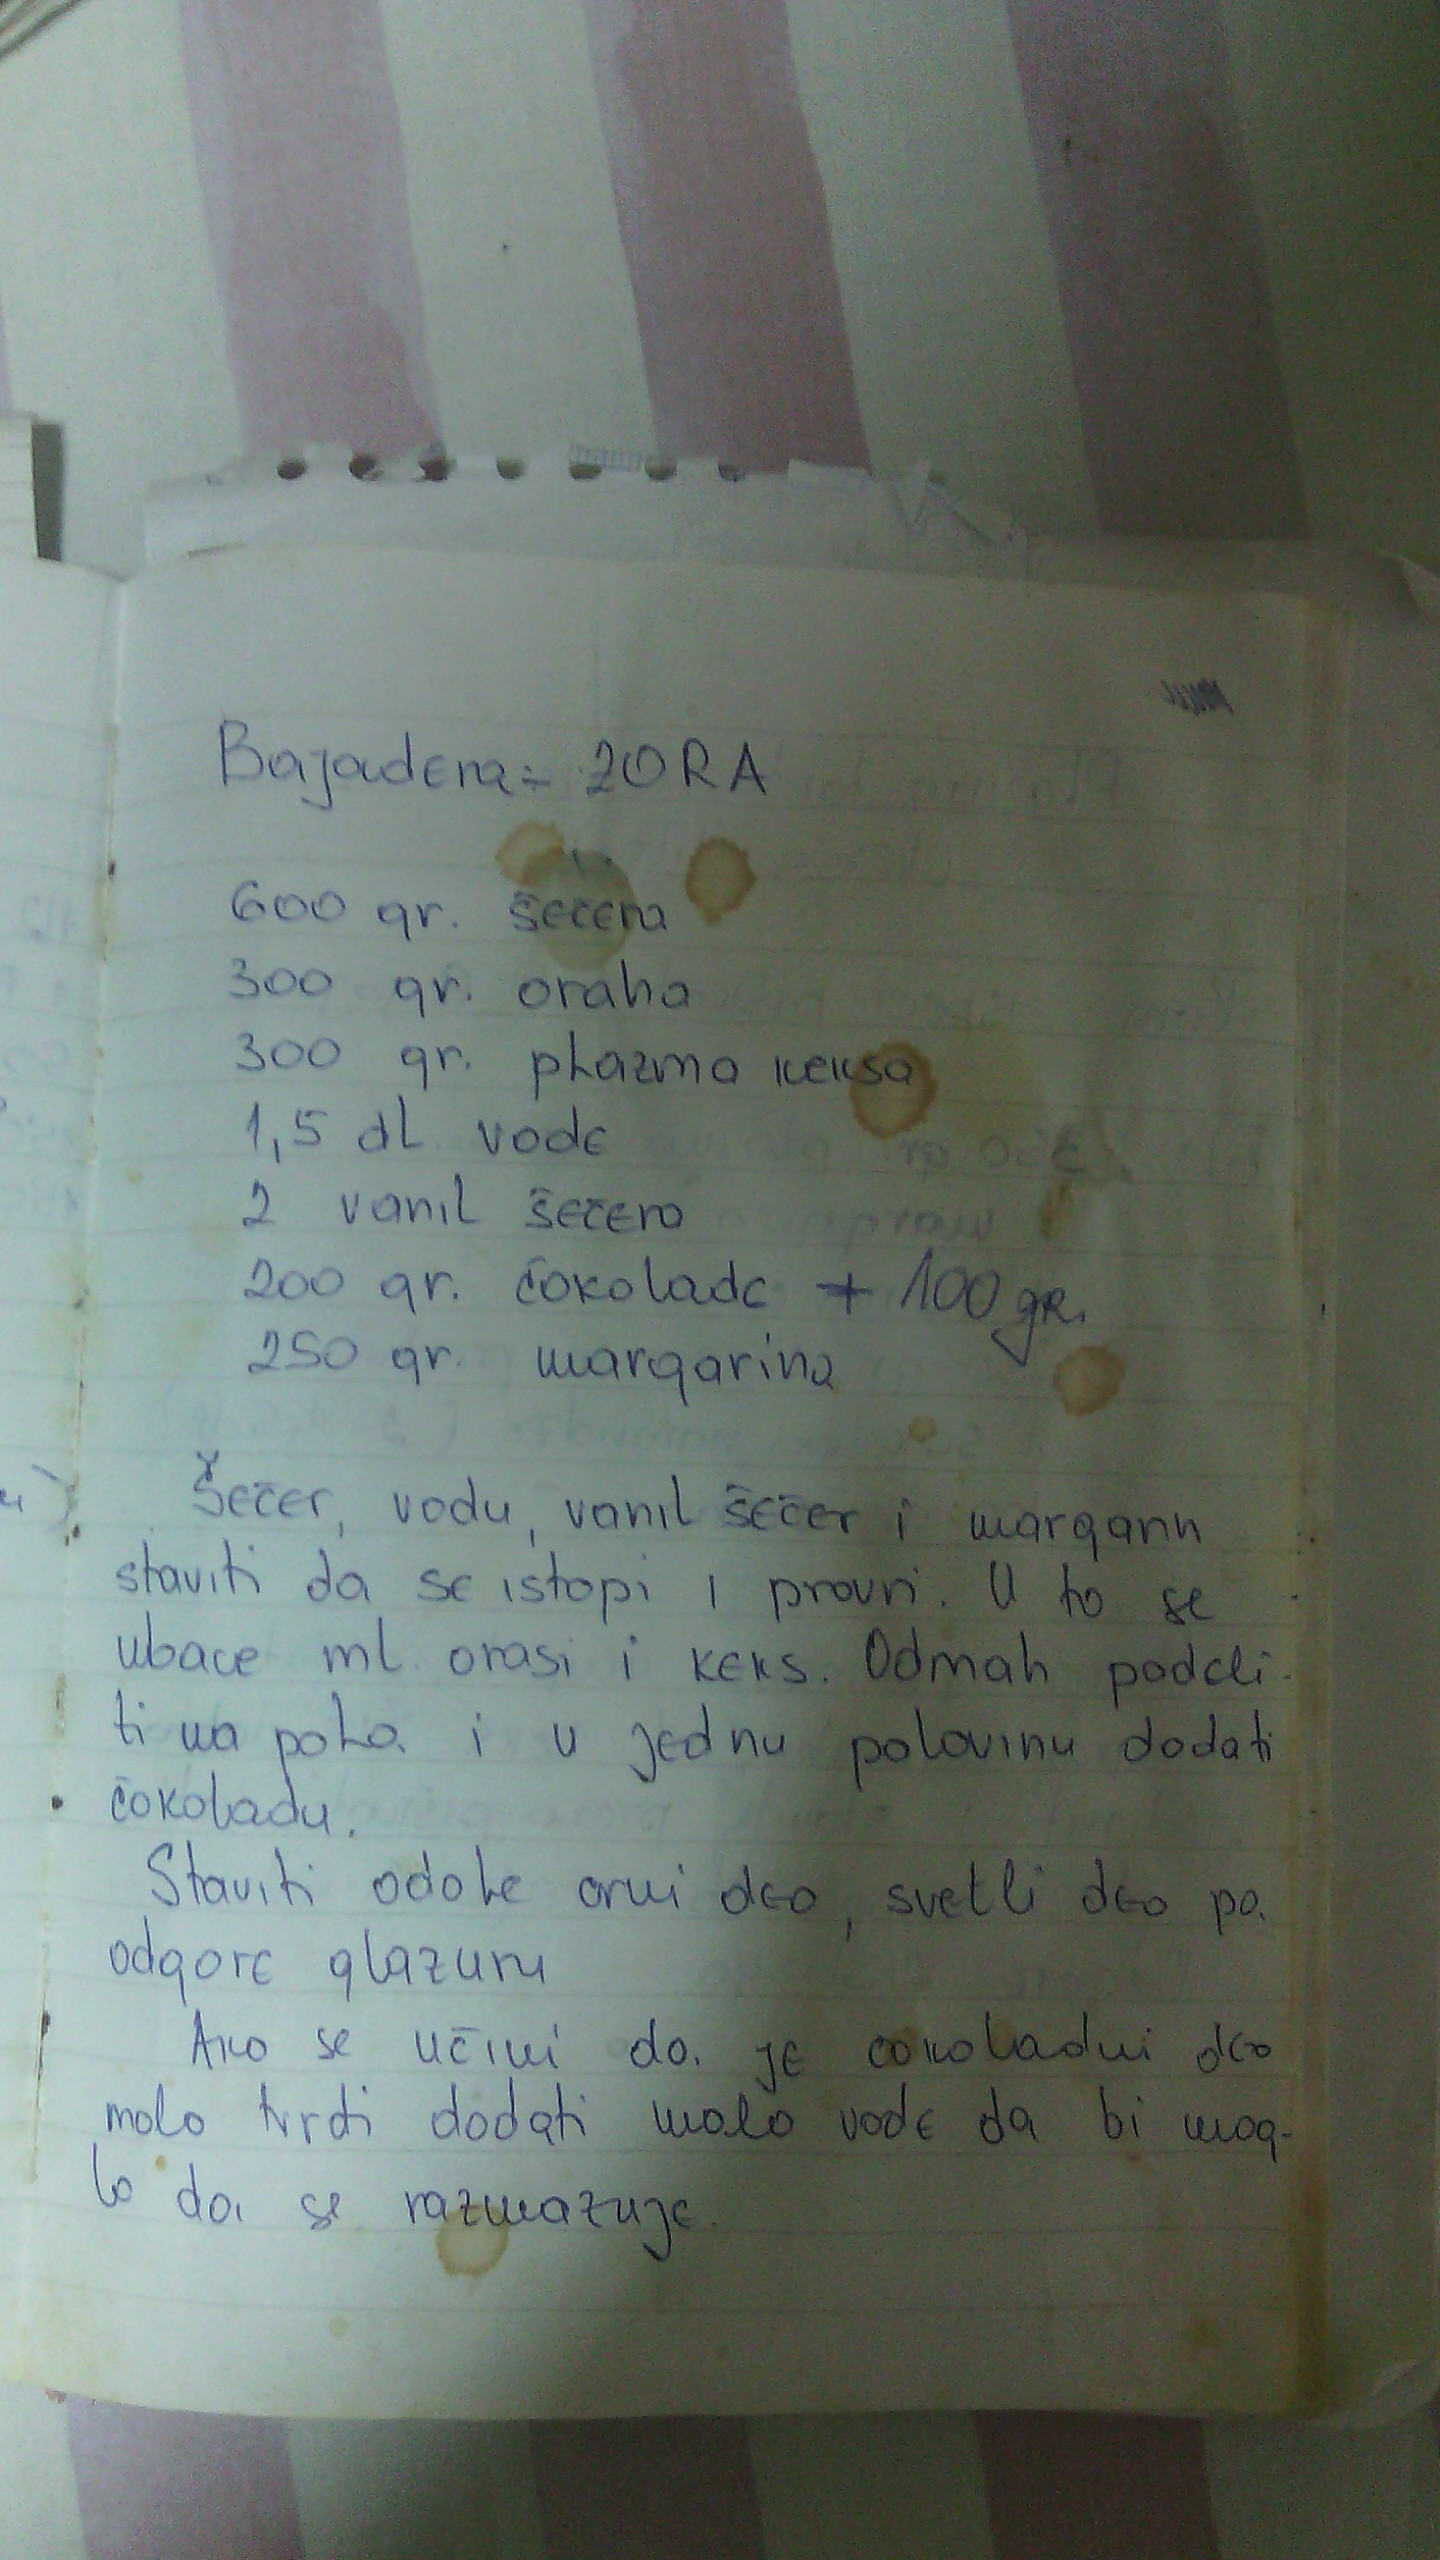 Bajadera - ZORA
600 gr. šećera
300 gr. oraha
300 gr. plazma keksa
1,5 dl vode
2 vanil šećera
200 gr. čokolade + 100 gr.
250 gr. margarina
Šećer, vodu, vanil šećer i margarin
staviti da se istopi i provri. U to se
ubace ml. orasi i keks. Odmah podeli-
ti na pola i u jednu polovinu dodati
čokoladu.
Staviti odole crni deo, svetli deo pa
odgore glazuru
Ako se učini da je čokoladni deo
malo tvrdi dodati malo vode da bi mog-
lo da se razmazuje.